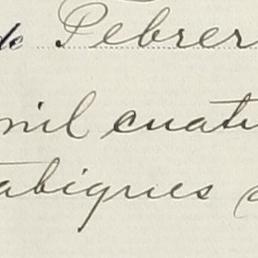 de Febrer
mil cuatr
tabiques